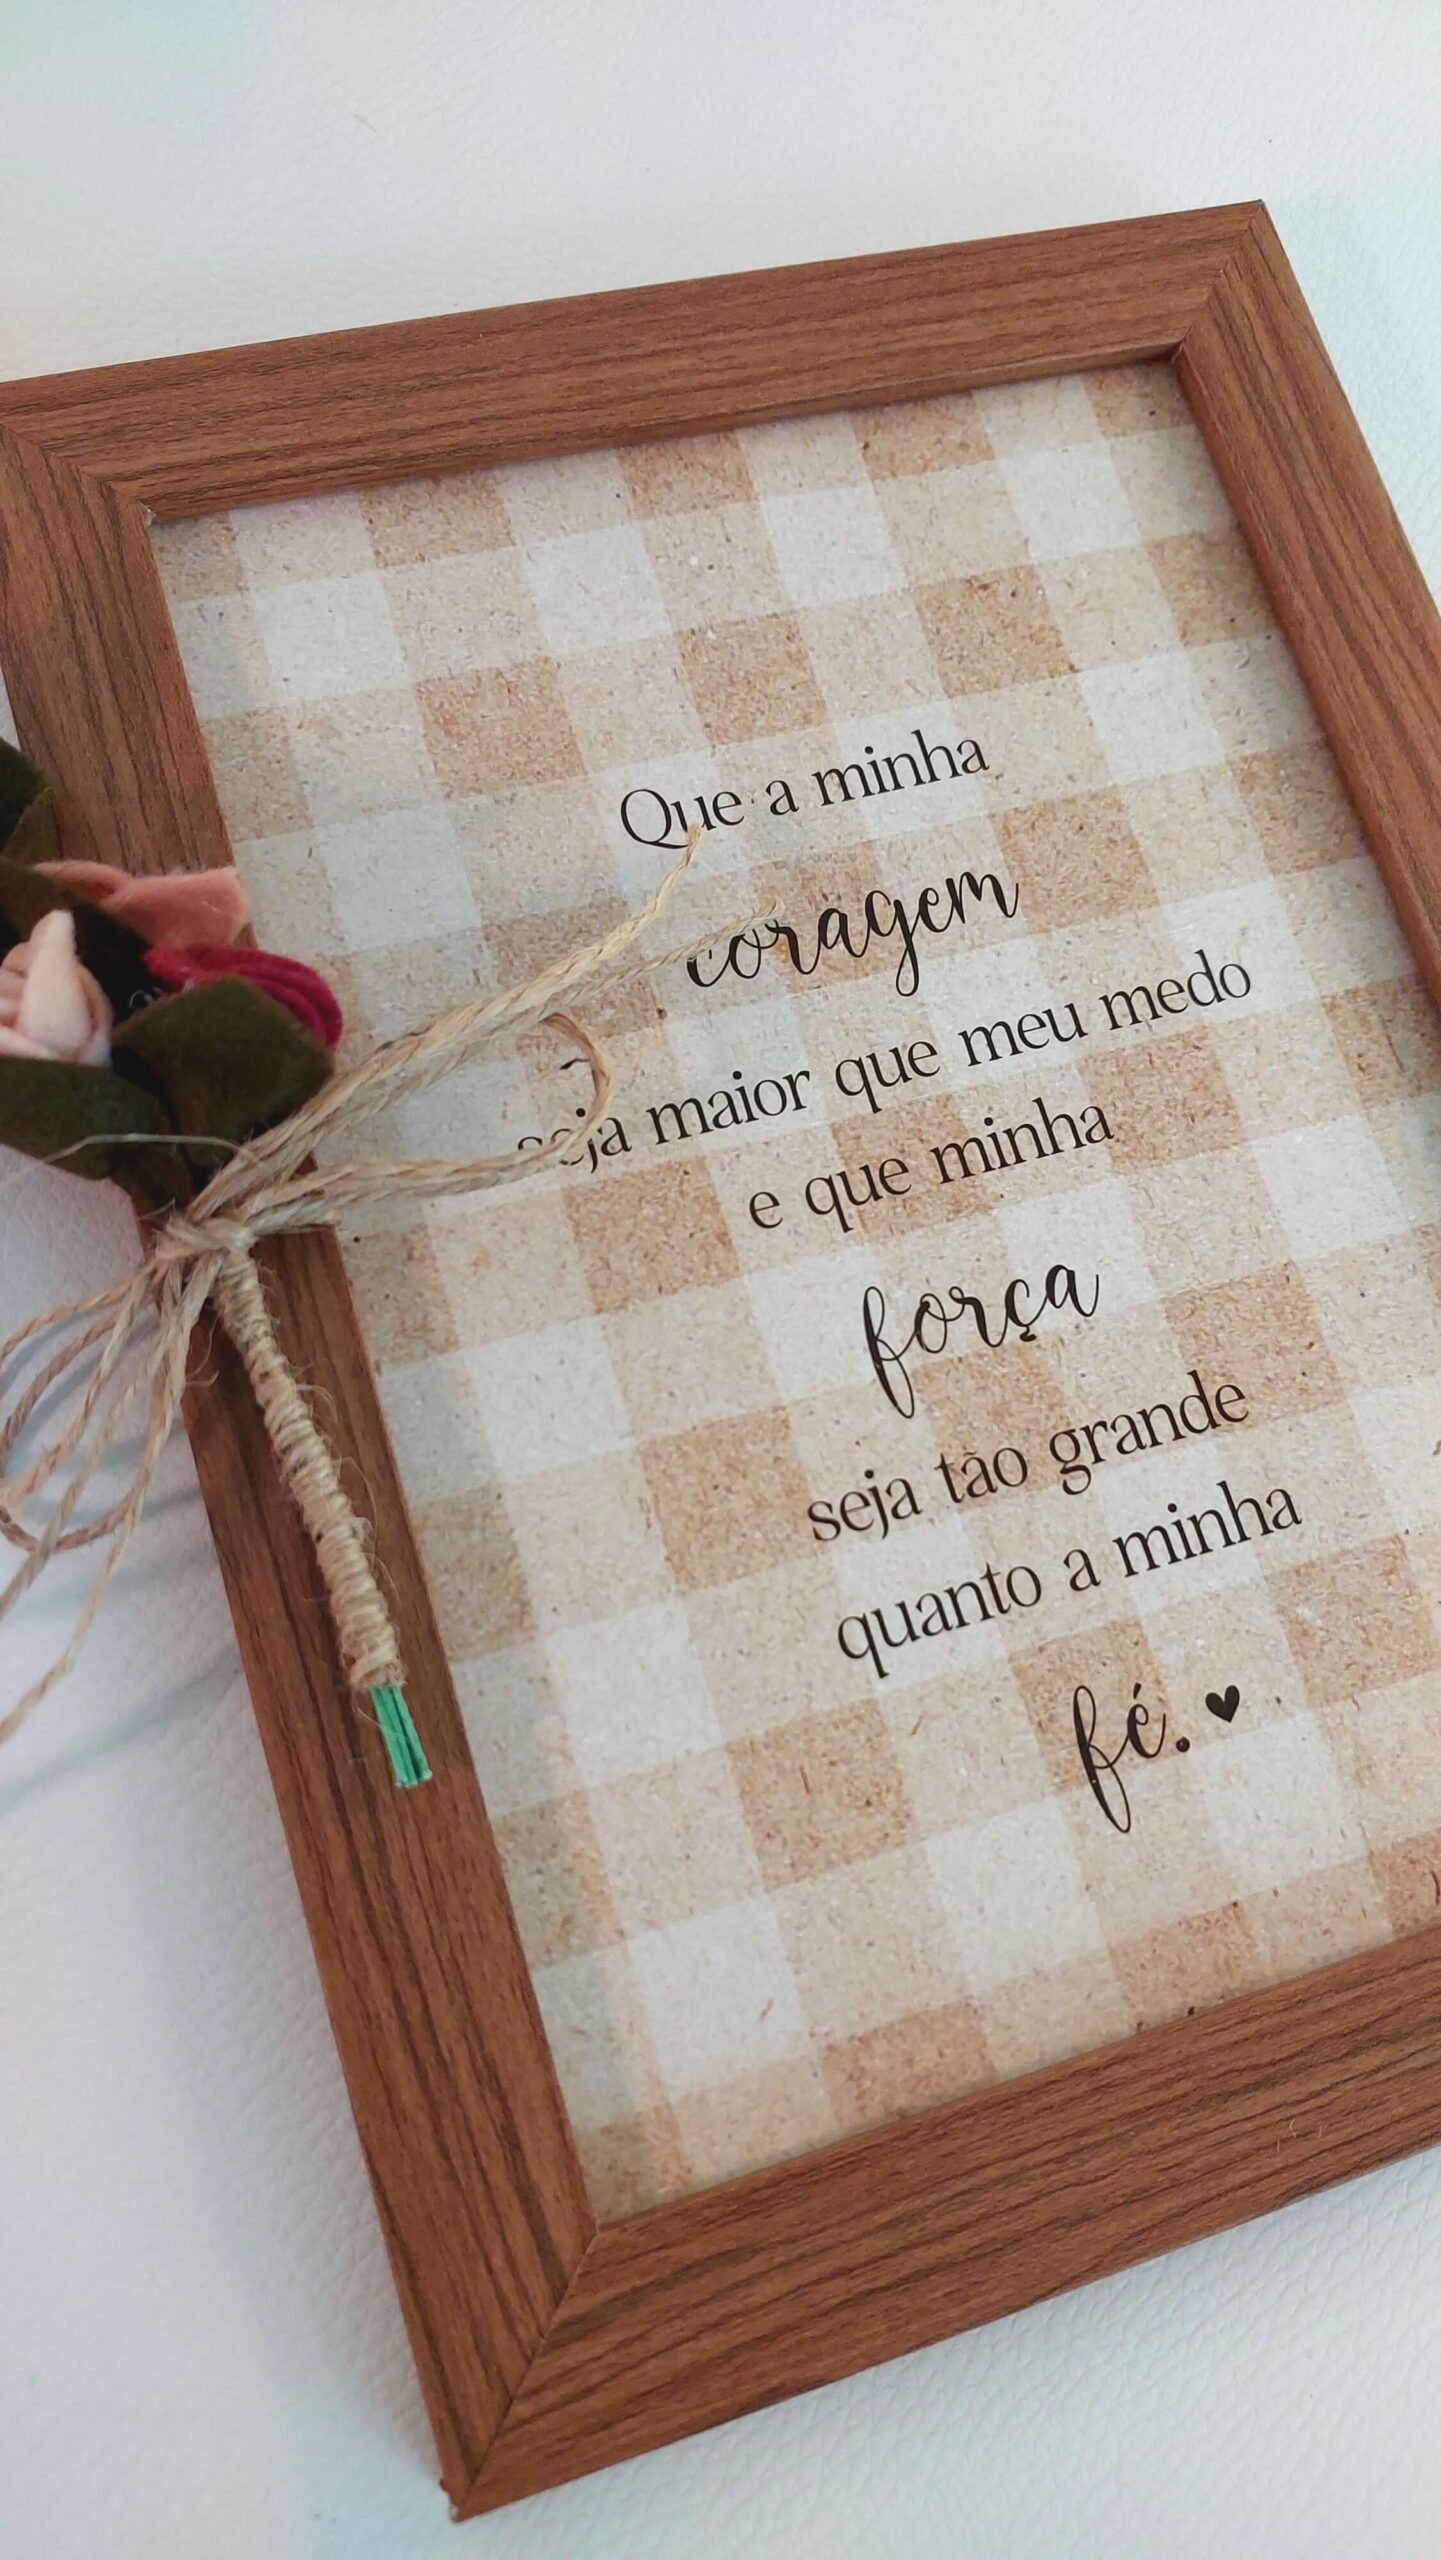 Que a minha
coragem
seja maior que meu medo
e que minha
força
seja tão grande
quanto a minha
fé.